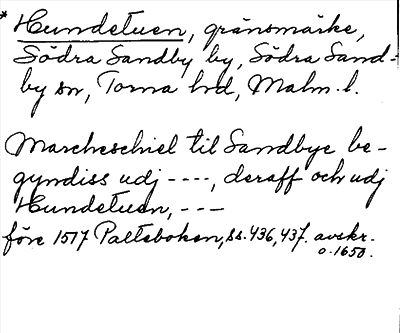 * Hundetuen, gränsmärke,
Södra Sandby by, Södra Sand-
by sn, Torna hd, Malm. l.
Marcheschiel til Sandbye be-
gyndiss udj ----, deraff och udj
Hundetuen, ---
före 1517 Palteboken, ss. 436, 437. avskr.
o. 1650.